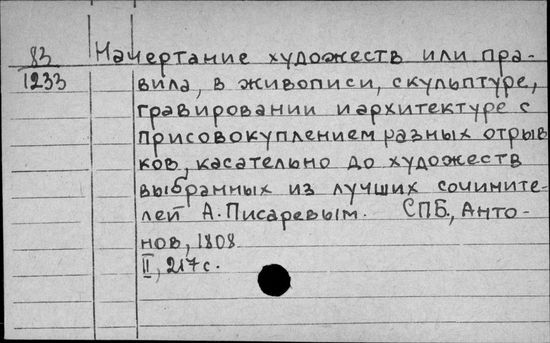 83 Начертание художеств или пра-
1233 вила, в живописи, скульптуре,
гравировании и архитектуре с
присовокуплением разных отрыв
ков, касательно до художеств
выбранных из лучших сочините-
лей А. Писаревым. СПБ., Анто-
нов, 1808
II, 217 с.